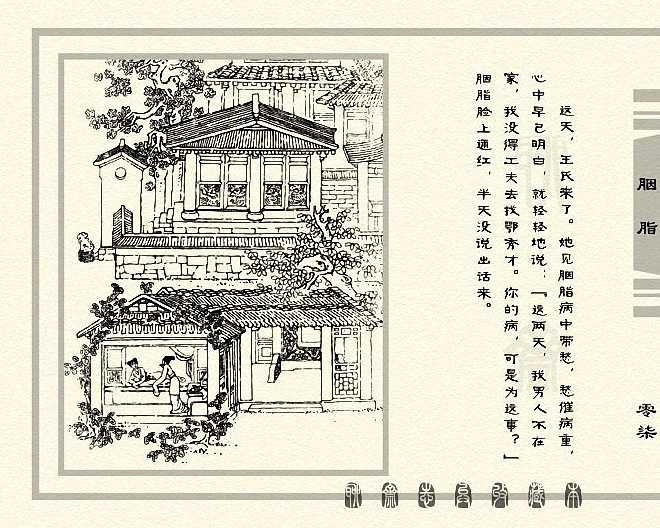 胭脂
零柒
这天，王氏来了。她见胭脂病中带愁，愁催病重，
心中早已明白，就轻轻地说：「这两天，我男人不在
家，我没得工夫去找鄂秀才。你的病，可是为这事？」
胭脂脸上通红，半天没说出话来。
聊齋志異珍藏本